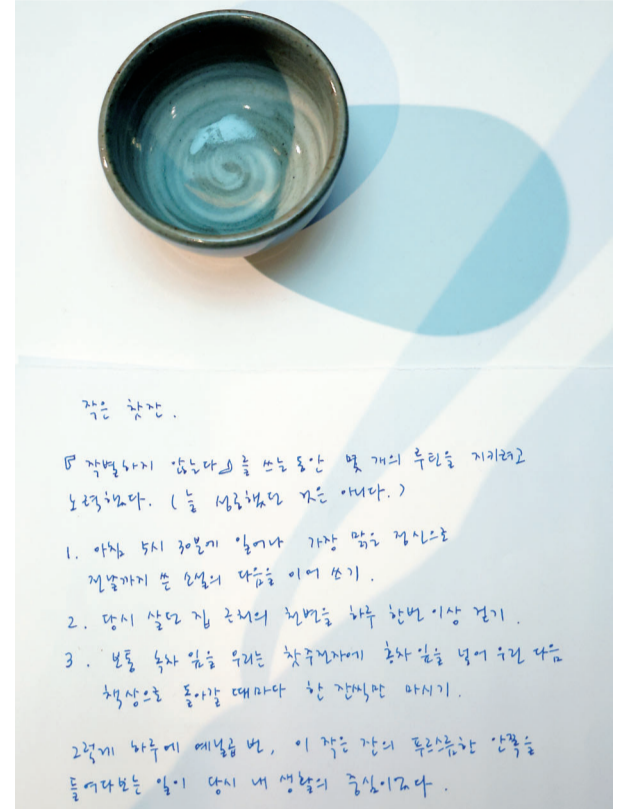 작은 찻잔.
『작별하지 않는다』를 쓰는 동안 몇 개의 루틴을 지키려고
노력했다. (늘 성공했던 것은 아니다.)
1. 아침 5시 30분에 일어나 가장 맑은 정신으로
전날까지 쓴 소설의 다음을 이어 쓰기.
2. 당시 살던 집 근처의 천변을 하루 한번 이상 걷기.
3. 보통 녹차 잎을 우리는 찻주전자에 홍차잎을 넣어 우린 다음
책상으로 돌아갈 때마다 한 잔씩만 마시기.
그렇게 하루에 예닐곱 번, 이 작은 잔의 푸르스름한 안쪽을
들여다보는 일이 당시 내 생활의 중심이었다.